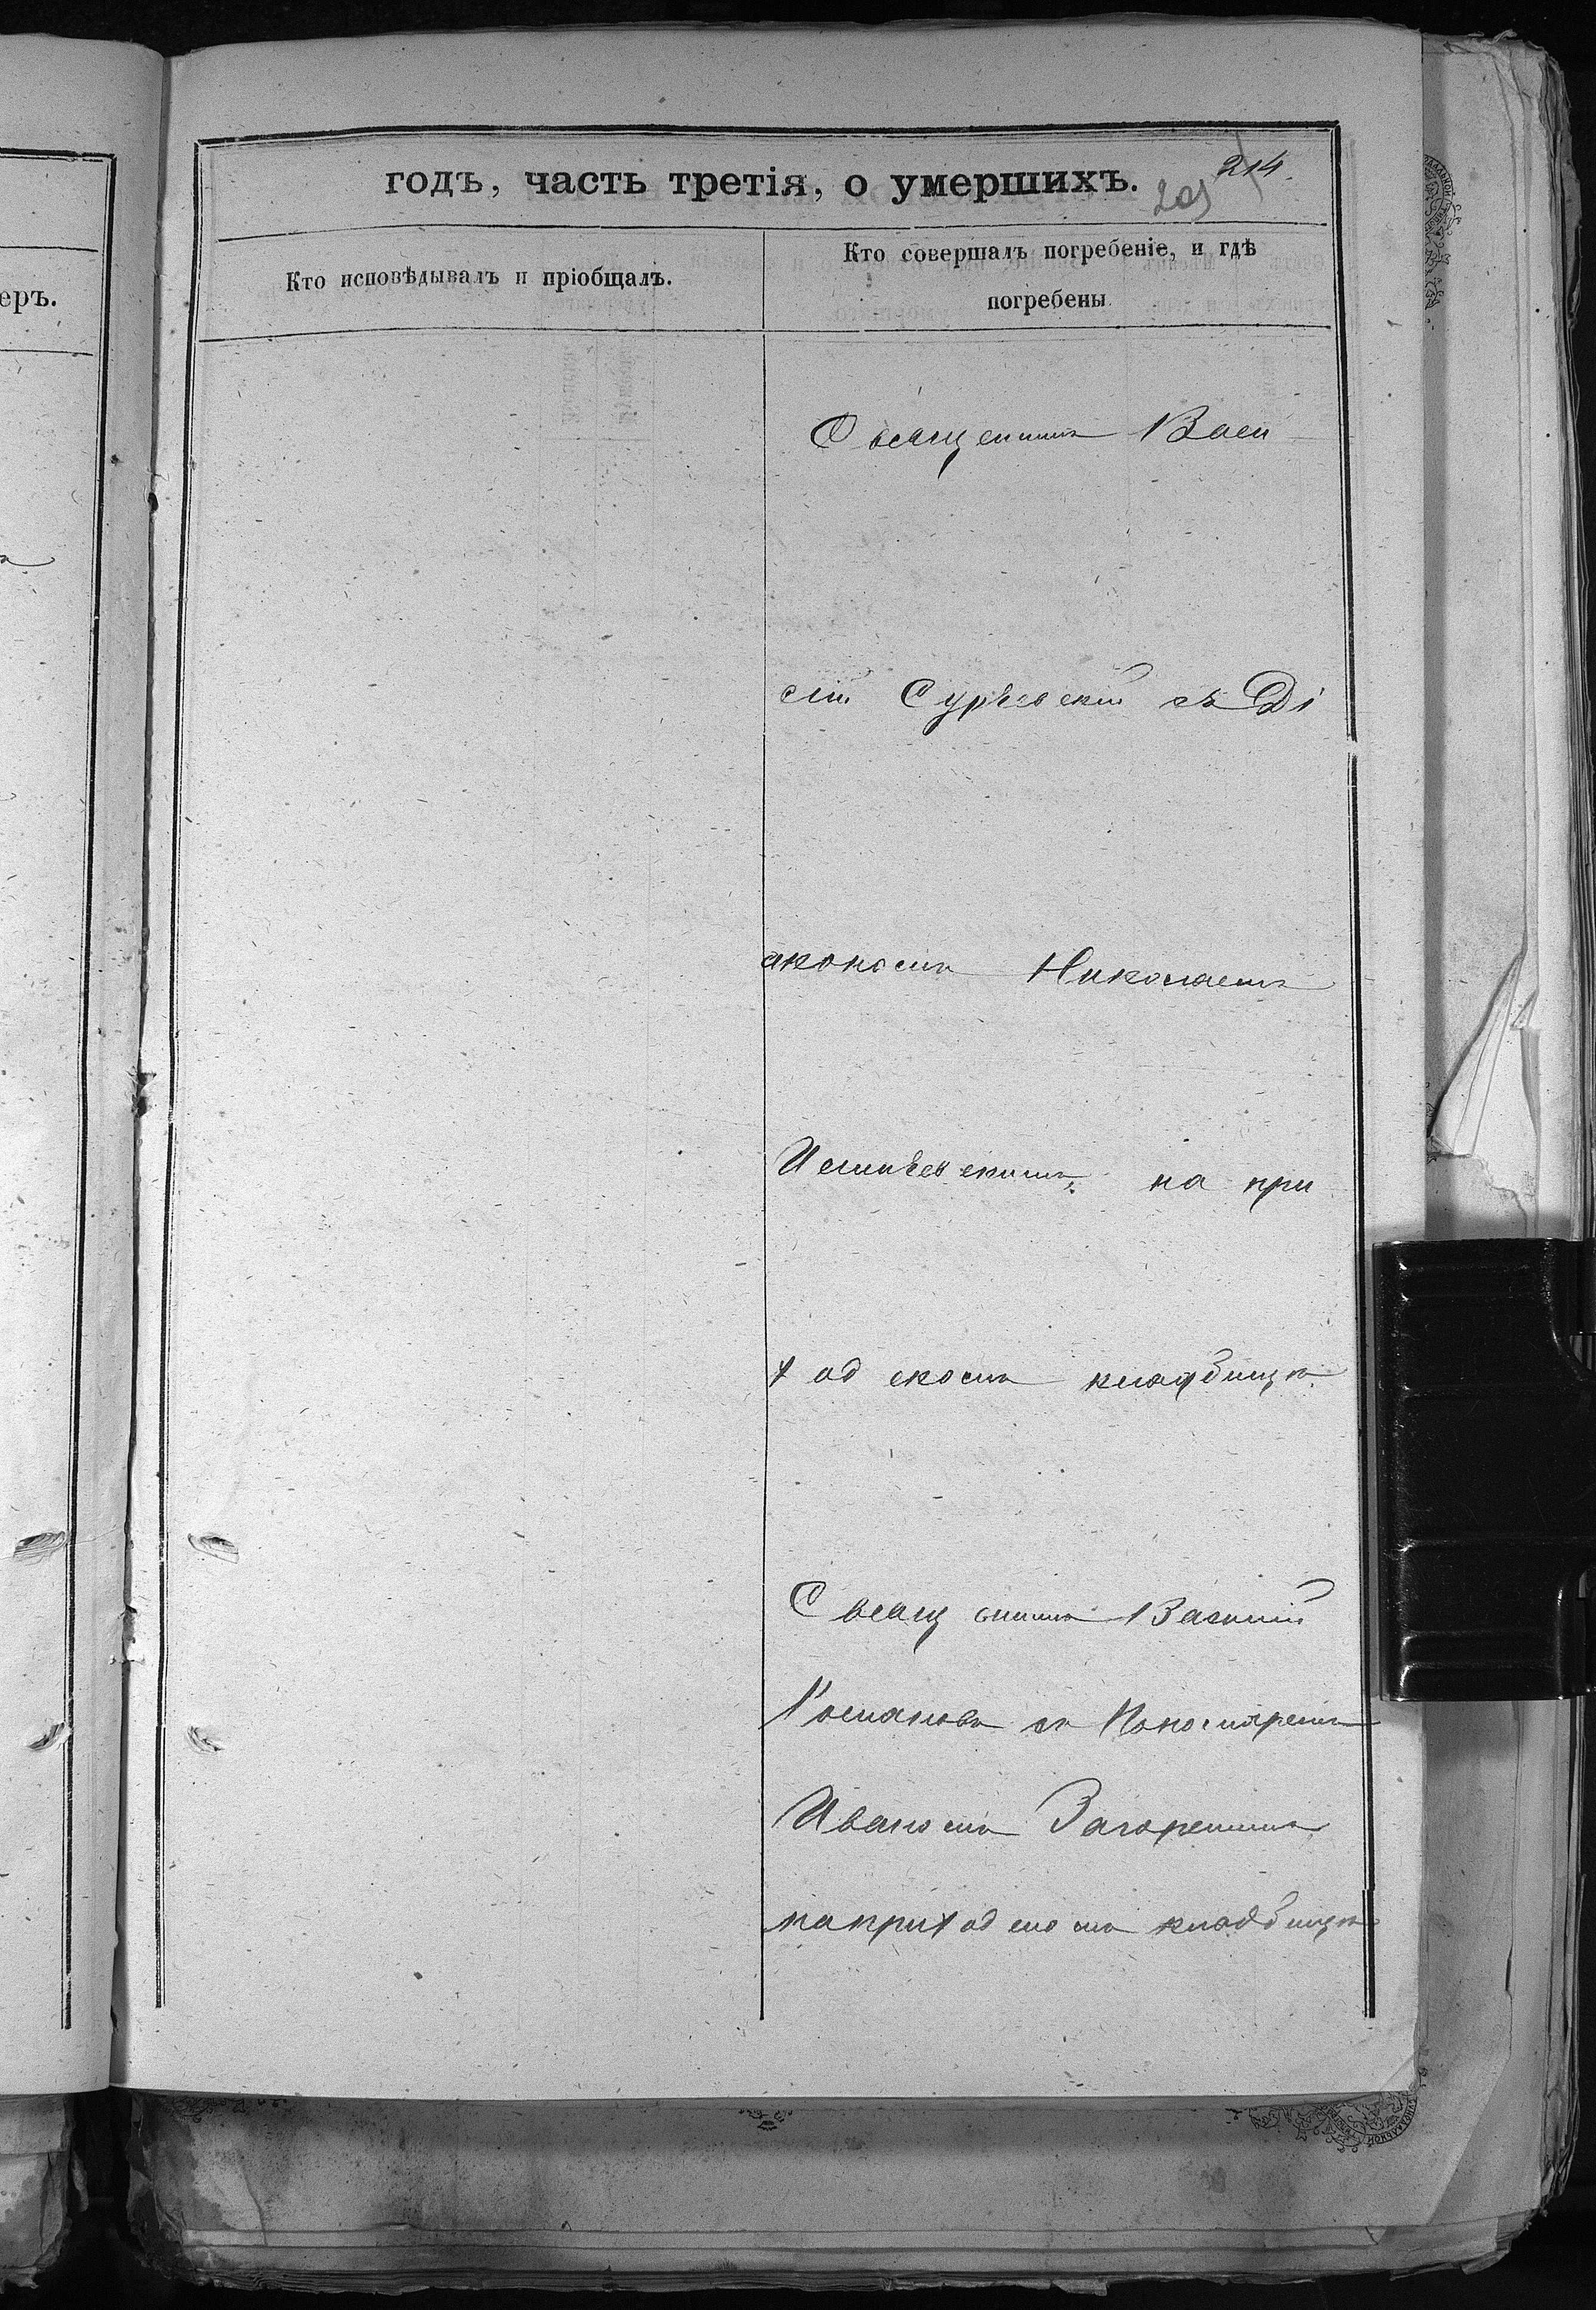 годъ, часть третія, о умершихъ.
214.
203
еръ.
Кто исповѣдывалъ и пріобщалъ.
Кто совершалъ погребеніе, и гдѣ
погребены
Священникъ Васи
лій Сурѣвскій съ Ді
акономъ Николаемъ
на при
ходскомъ кладбищѣ.
Священникъ Василій
съ Пономаремъ
Иваномъ Загорскимъ
на приходскомъ кладбищѣ